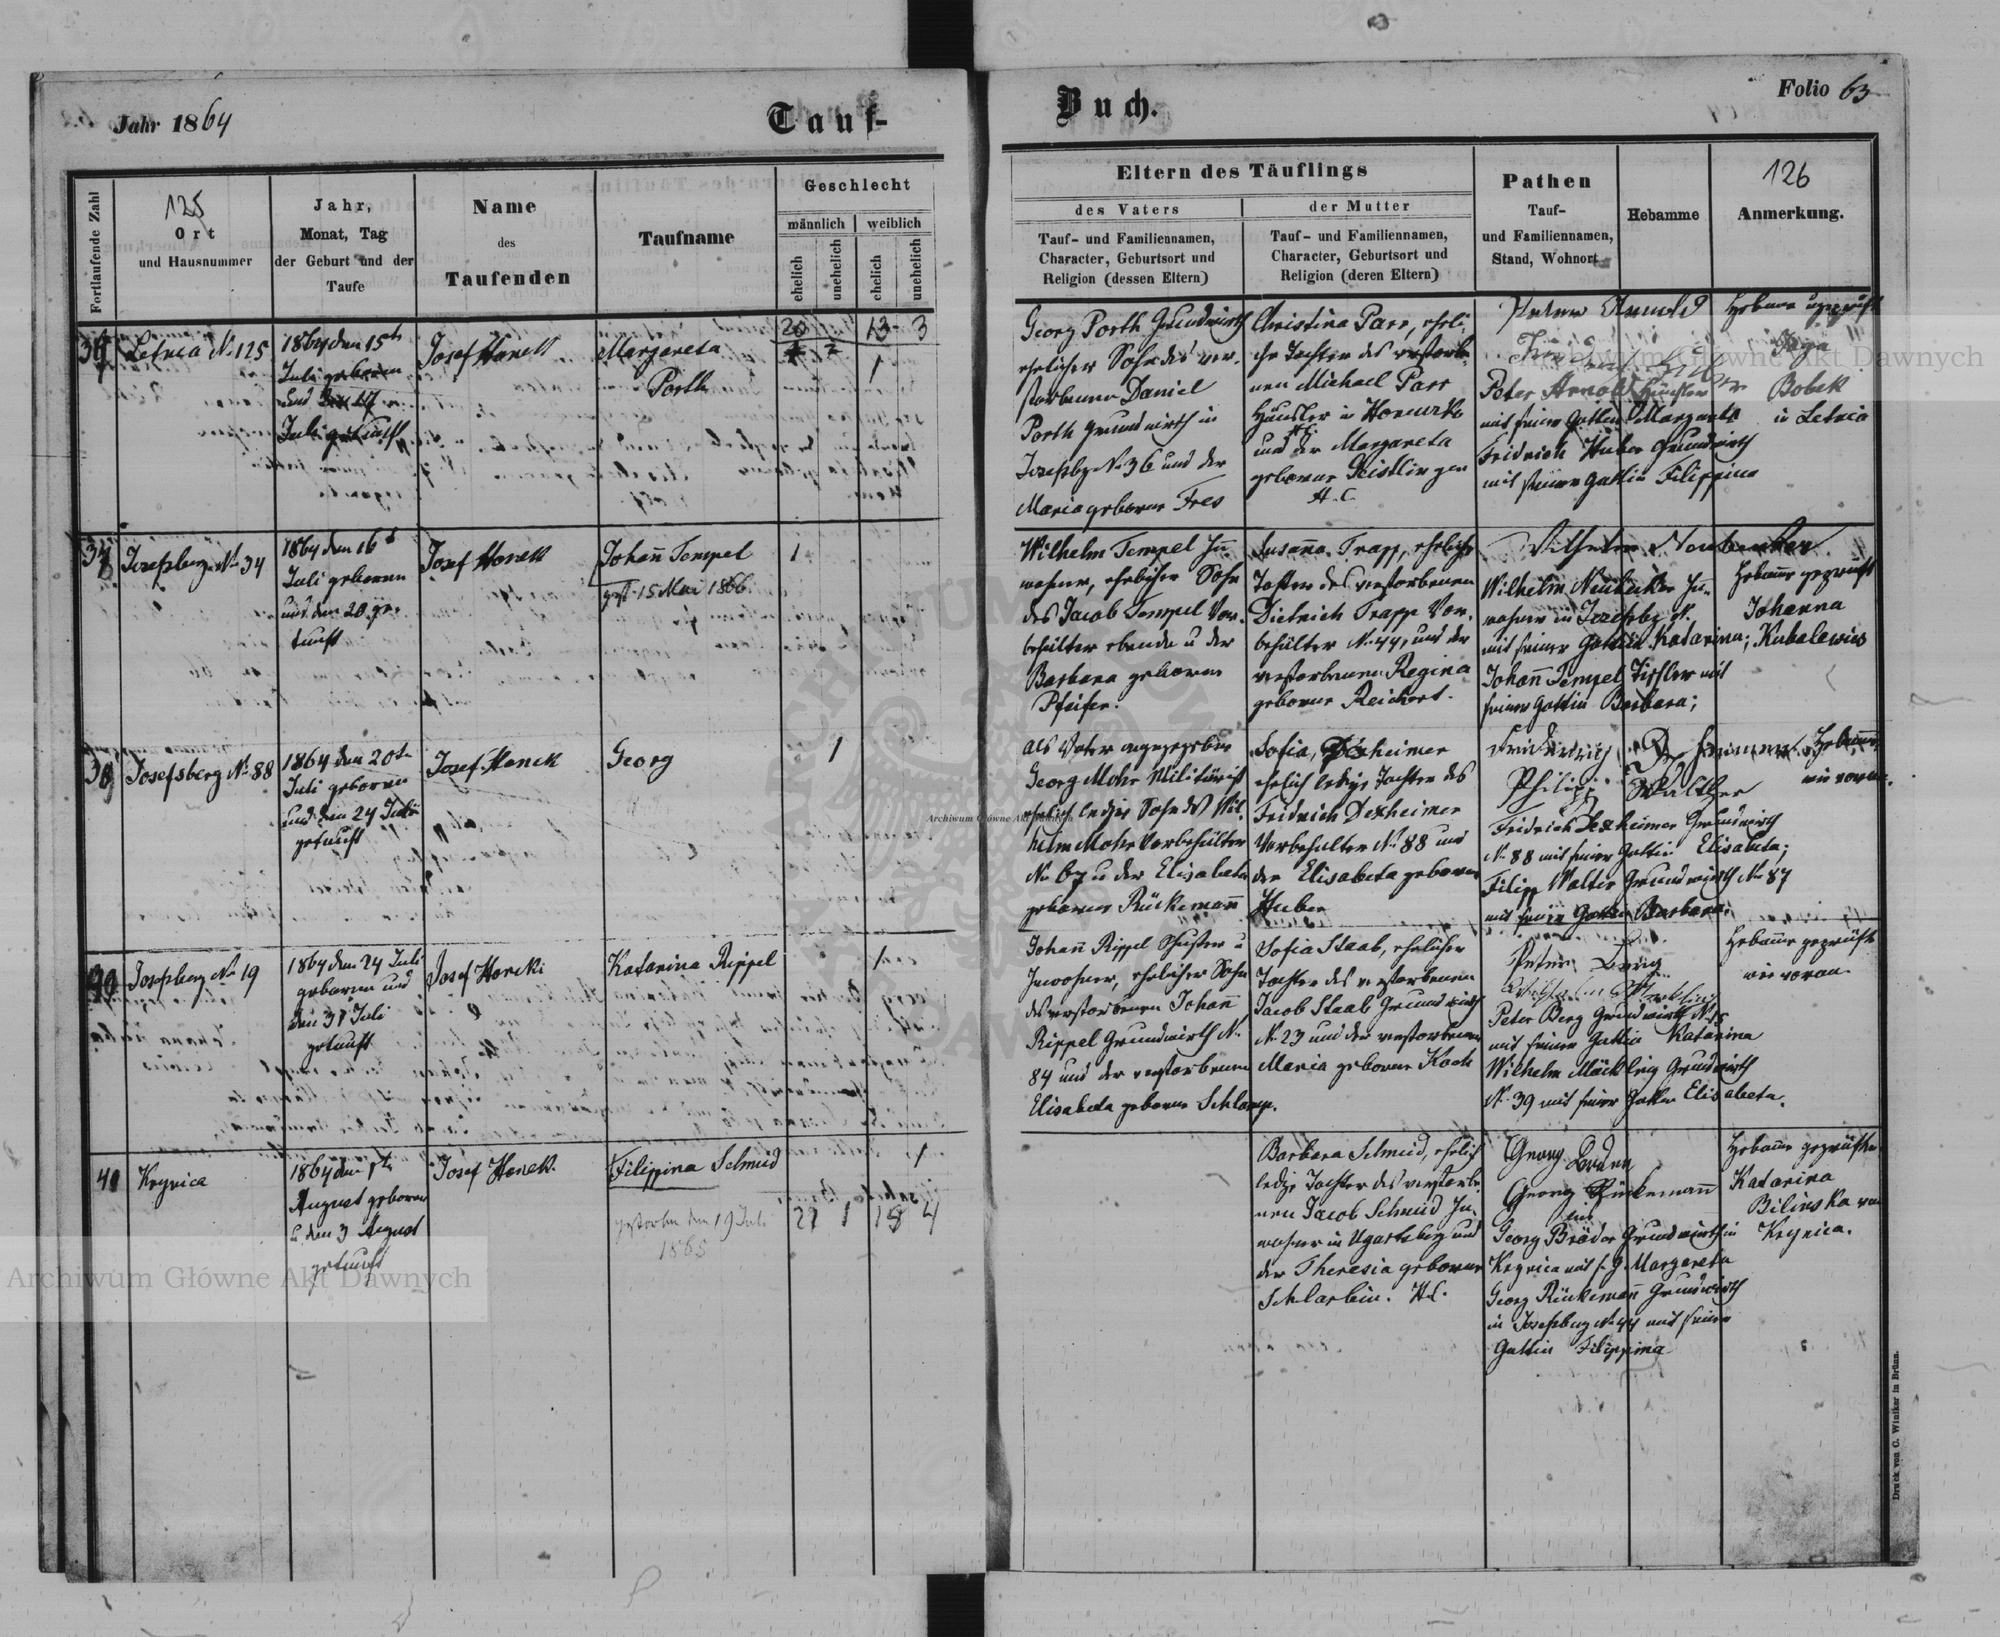 Jahr 1864
Tauf-
Buch.
Folio 63
Fortlaufende Zahl
125
Ort
und Hausnummer
Jahr,
Monat, Tag
der Geburt und der
Taufe
Name
des
Taufenden
Taufname
Geschlecht
männlich
weiblich
ehelich
unehelich
ehelich
unehelich
Eltern des Täuflings
des Vaters
Tauf- und Familiennamen,
Character, Geburtsort und
Religion (dessen Eltern)
der Mutter
Tauf- und Familiennamen,
Character, Geburtsort und
Religion (deren Eltern)
Pathen
Tauf-
und Familiennamen,
Stand, Wohnort
Hebamme
126
Anmerkung.
20
13
3
36
Letnia No 125
1864 den 15ten
Juli geboren
und den
Juli getauft
Josef Honek
Margareta
Porth
1
Georg Porth Grundwirth
ehelicher Sohn des ver-
storbenen Daniel
Porth Grundwirth in
Josefsbg No 36 und der
Maria geborne Fres
Christina Parr, eheli-
che Tochter des verstorbe-
nen Michael Parr
Häusler in
und der Margareta
geborne Geistlinger
H.C.
Peter Arnold
Peter Arnold Häusler
mit seiner Gattin Margareta
Fridrich Huber Grundwirth
mit seiner Gattin Filippina
Hebame ungeprüft
Bobek
in Letnia
37
Josefsberg No 34
1864 den 16t
Juli geboren
und den 20 ge-
tauft
Josef Honek
Johann Tempel
gest. 15 Mai 1866.
1
Wilhelm Tempel In-
wohner, ehelicher Sohn
des Jacob Tempel Vor-
behälter ebenda u der
Barbara geborne
Pfeifer.
Susanna Trapp, eheliche
Tochter des verstorbenen
Dietrich Trapp Vor-
behälter No 44, und der
verstorbenen Regina
geborne Reichert.
Wilhelm Neubecker
Wilhelm Neubecker In-
wohner in Josefsbg No
mit seiner Gattin Katarina;
Johann Tempel Tischler mit
seiner Gattin Barbara;
Hebame geprüft
Johanna
Kubalewicz
38
Josefsberg No 88
1864 den 20ten
Juli geboren
und den 24 Juli
getauft
Josef Honek
Georg
1
Als Vater angegeben
Georg Mohr Militärist
ehelich lediger Sohn des Wil-
helm Mohr Vorbehälter
No 67 u der Elisabeta
geborne Rückemann
Sofia Dexheimer
ehelich ledige Tochter des
Fridrich Dexheimer
Vorbehälter No 88 und
der Elisabeta geborne
Huber
Friedrich Dexheimer
Philipp Walther
Fridrich Dexheimer Grundwirth
No 88 mit seiner Gattin Elisabeta;
Filipp Walter Grundwirth No 87
mit seiner Gattin Barbara;
Hebame
wie voran.
39
Josefsberg No 19
1864 den 24 Juli
geboren und
den 31 Juli
getauft
Josef Honek
Katarina Rippel
1
Johann Rippel Schuster u
Inwohner, ehelicher Sohn
des verstorbenen Johann
Rippel Grundwirth No
84 und der verstorbenen
Elisabeta geborne Schlamp.
Sofia Staab, eheliche
Tochter des verstorbenen
Jacob Staab Grundwirth
No 23 und der verstorbenen
Maria geborne Koch
Peter Berg
Peter Berg Grundwirth No 15
mit seiner Gattin Katarina
Wilhelm Mäcklin Grundwirth
No 39 mit seiner Gattin Elisabeta.
Hebame geprüft
wie voran.
40
Krynica
1864 den 1ten
August geboren
u. den 3 August
getauft
Josef Honek.
Filippina Schmid
gestorben den 19 Juli
1865
1
21 1 18 4
Barbara Schmid, ehelich
ledige Tochter des verstorbe-
nen Jacob Schmid In-
wohner in Ugartsberg und
der Theresia geborne
Schlarbin. H.C.
Georg Bräder
Georg Rückemann
Georg Bräder Grundwirth in
Krynica mit s. G. Margareta
Georg Rückemann Grundwirth
in Josefsberg No 44 mit seiner
Gattin Filippina
Hebame geprüfte
Katarina
Bilinska von
Krynica.
Druck von C. Winiker in Brünn.
Archiwum Główne Akt Dawnych
Archiwum Główne Akt Dawnych
Archiwum Główne Akt Dawnych